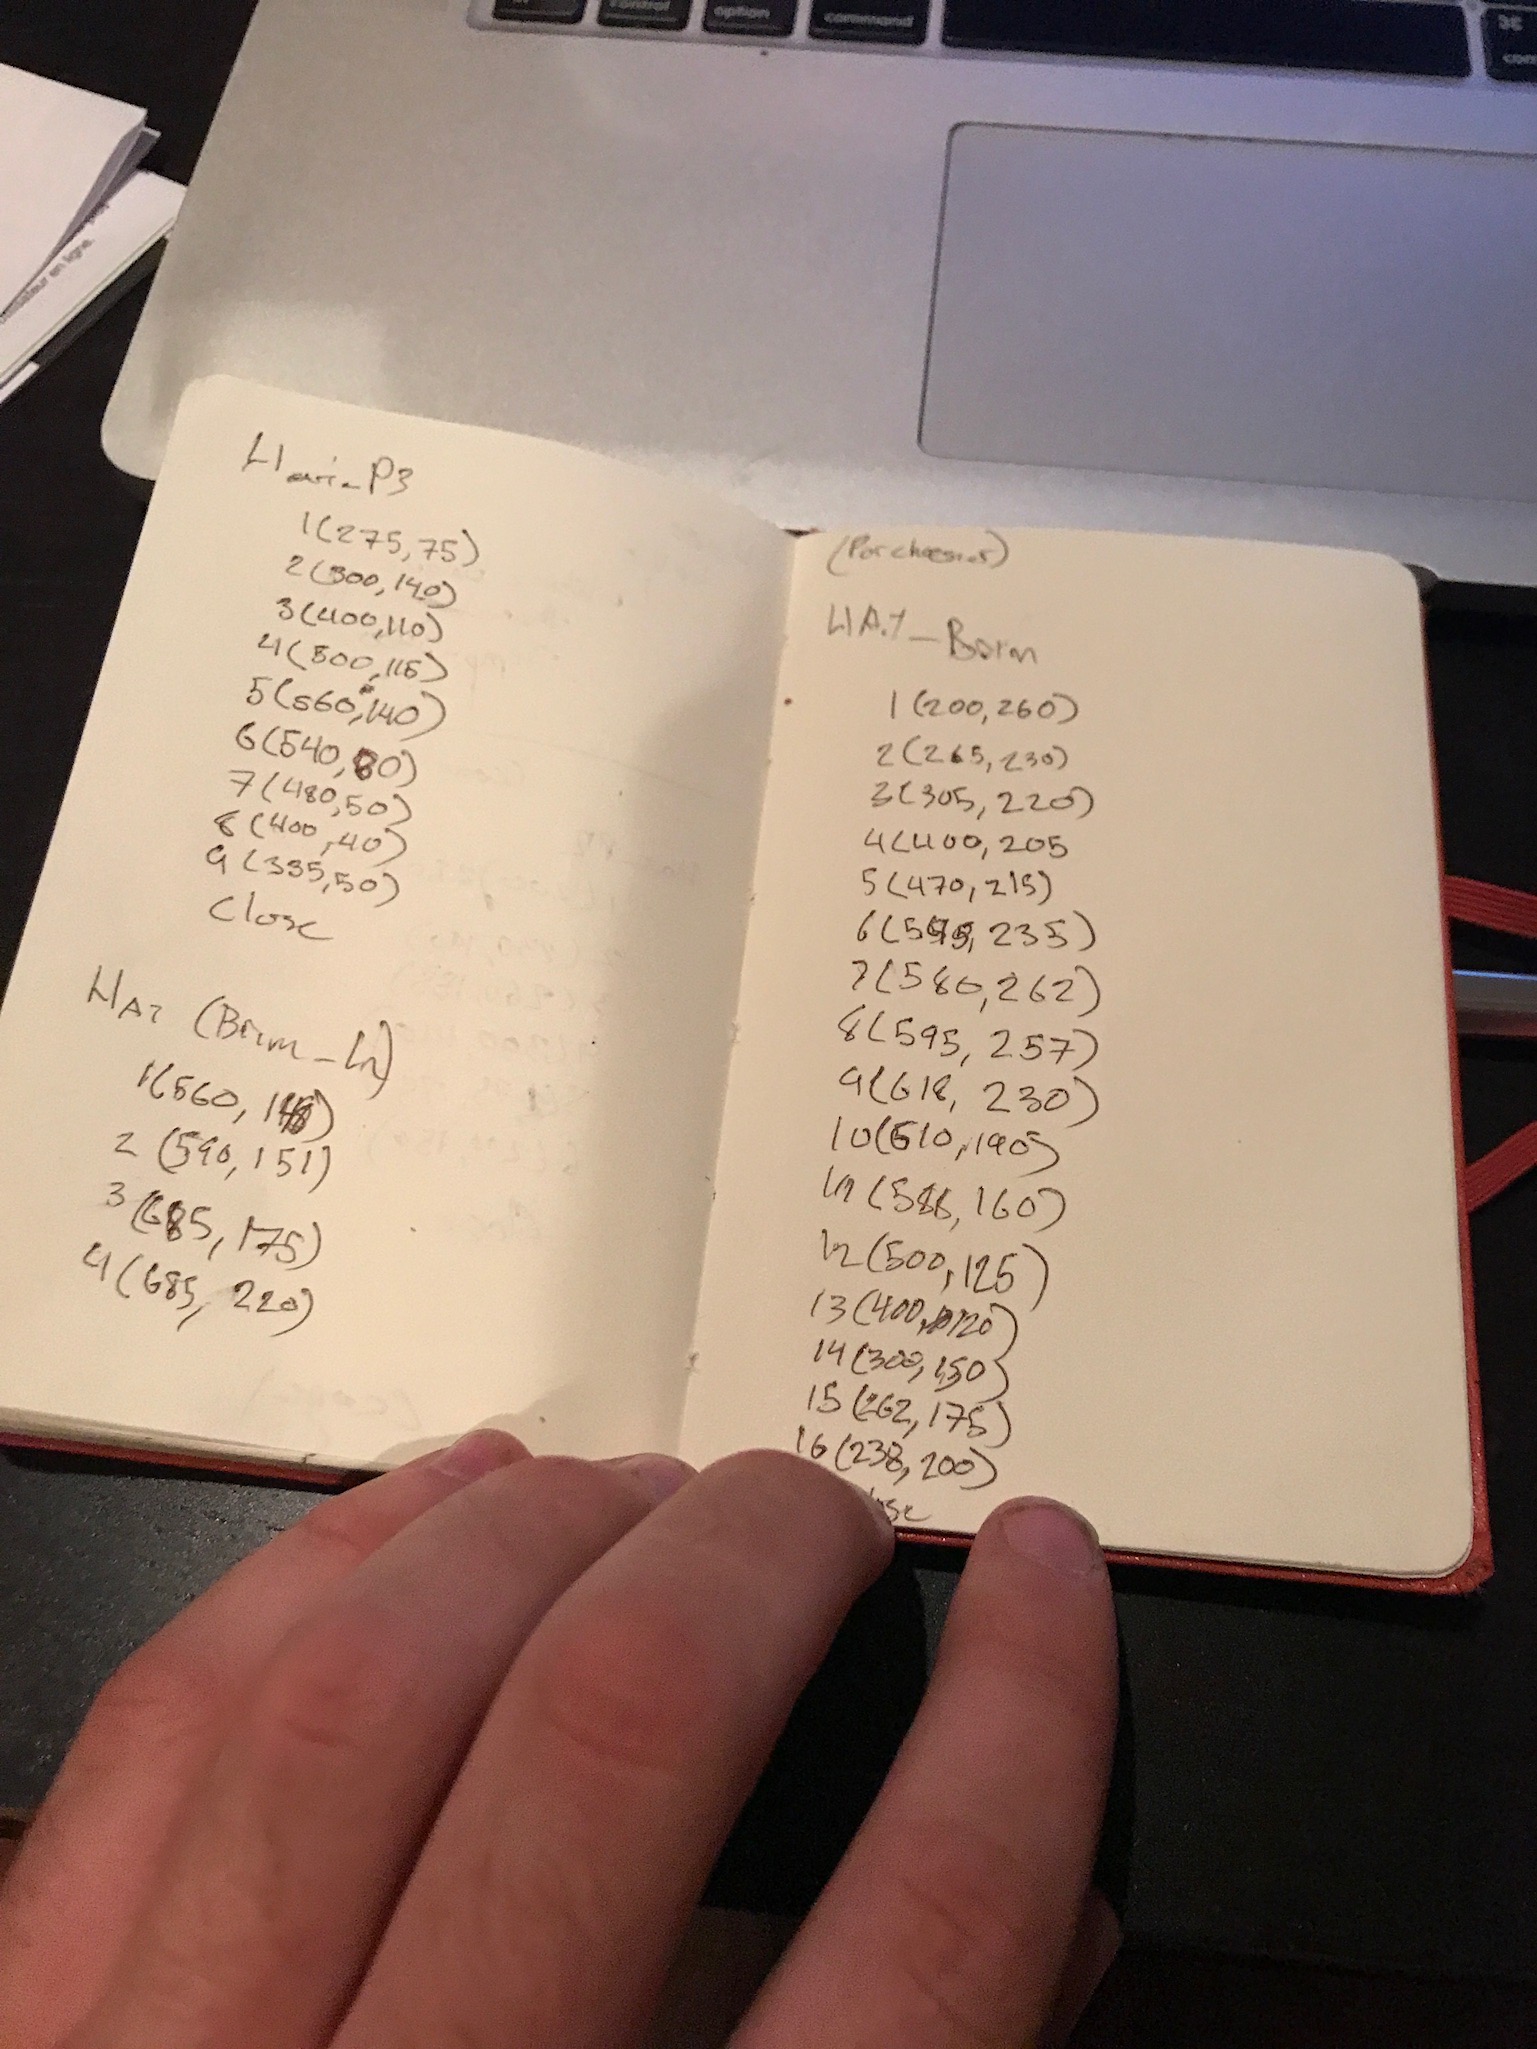 control
option
command
P3
1(275,75)
2(300,140)
3(400,110)
4(500,115)
5(560,140)
6(540,80)
7(480,50)
8(400,40)
9(335,50)
Close
HAT (Brim - Ln)
1(560,
2 (590,151)
3(685,175)
4(685, 220)
HAT_Brim
1(200,260)
2(265,230)
3(305,220)
4(400,205
5(470,215)
6(545,235)
7(580,262)
8(595,257)
9(618, 230)
10(610,190)
11(586,160)
12(500,125)
13(400,120)
14(300,150)
15(262,175)
16(238,200)